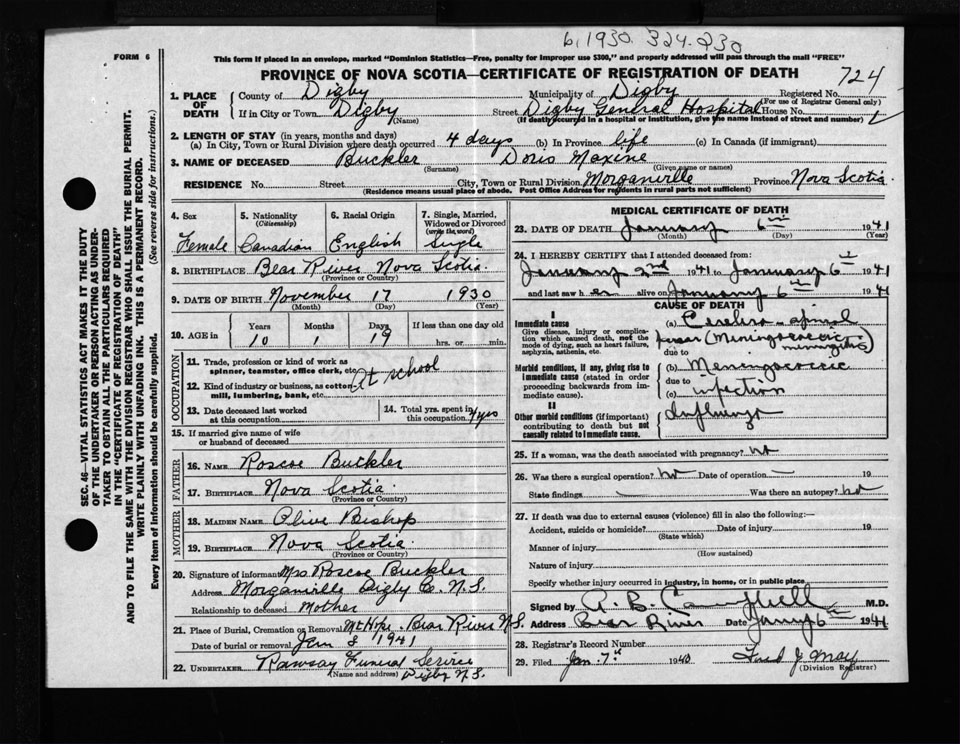 6, 1930. 324-230
FORM 6
This form if placed in an envelope, marked "Dominion Statistics—Free, penalty for improper use $300," and properly addressed will pass through the mail "FREE"
PROVINCE OF NOVA SCOTIA—CERTIFICATE OF REGISTRATION OF DEATH
724
1. PLACE OF DEATH
County of Digby Municipality of Digby Registered No.
(For use of Registrar General only)
If in City or Town Digby Street Digby General Hospital House No.
(Name) (If death occurred in a hospital or institution, give the name instead of street and number)
2. LENGTH OF STAY (in years, months and days)
(a) In City, Town or Rural Division where death occurred 4 days (b) In Province life (c) In Canada (if immigrant)
3. NAME OF DECEASED Buckler Doris Maxine
(Surname) (Given name or names)
RESIDENCE No. Street City, Town or Rural Division Morganville Province Nova Scotia
(Residence means usual place of abode. Post Office Address for residents in rural parts not sufficient)
4. Sex
Female
5. Nationality
(Citizenship)
Canadian
6. Racial Origin
English
7. Single, Married, Widowed or Divorced
(write the word)
Single
8. BIRTHPLACE Bear River Nova Scotia
(Province or Country)
9. DATE OF BIRTH November 17 1930
(Month) (Day) (Year)
10. AGE in
Years Months Days If less than one day old
10 1 19 hrs. or min.
OCCUPATION
11. Trade, profession or kind of work as
spinner, teamster, office clerk, etc.
At school
12. Kind of industry or business, as cotton
mill, lumbering, bank, etc.
13. Date deceased last worked
at this occupation
14. Total yrs. spent in
this occupation 4 yrs
15. If married give name of wife
or husband of deceased
FATHER
16. NAME Roscoe Buckler
17. BIRTHPLACE Nova Scotia
(Province or Country)
MOTHER
18. MAIDEN NAME Olive Bishop
19. BIRTHPLACE Nova Scotia
(Province or Country)
20. Signature of informant Mrs Roscoe Buckler
Address Morganville Digby Co. N.S.
Relationship to deceased Mother
21. Place of Burial, Cremation or Removal Mt Hope - Bear River N.S.
Date of burial or removal Jan 8 1941
22. UNDERTAKER Ramsay Funeral Service
(Name and address) Digby N.S.
MEDICAL CERTIFICATE OF DEATH
23. DATE OF DEATH January 6th 1941
(Month) (Day) (Year)
24. I HEREBY CERTIFY that I attended deceased from:
January 2nd 1941 to January 6th 1941
and last saw her alive on January 6th 1941
CAUSE OF DEATH
I
Immediate cause
Give disease, injury or complication which caused death, not the mode of dying, such as heart failure, asphyxia, asthenia, etc.
(a) Cerebro-spinal
fever (Meningococcic
meningitis)
due to
Morbid conditions, if any, giving rise to immediate cause (stated in order proceeding backwards from immediate cause).
(b) Meningococcic
due to
(c) infection
II
Other morbid conditions (if important) contributing to death but not causally related to immediate cause.
Influenza
25. If a woman, was the death associated with pregnancy? no
26. Was there a surgical operation? no Date of operation — 19
State findings — Was there an autopsy? no
27. If death was due to external causes (violence) fill in also the following:—
Accident, suicide or homicide? Date of injury 19
(State which)
Manner of injury
(How sustained)
Nature of injury
Specify whether injury occurred in industry, in home, or in public place
Signed by A. B. Campbell M.D.
Address Bear River Date Jan'y 6th 1941
28. Registrar's Record Number
29. Filed Jan. 7th 1940 Fred J May
(Division Registrar)
SEC. 46—VITAL STATISTICS ACT MAKES IT THE DUTY
OF THE UNDERTAKER OR PERSON ACTING AS UNDER-
TAKER TO OBTAIN ALL THE PARTICULARS REQUIRED
IN THE "CERTIFICATE OF REGISTRATION OF DEATH"
AND TO FILE THE SAME WITH THE DIVISION REGISTRAR WHO SHALL ISSUE THE BURIAL PERMIT.
WRITE PLAINLY WITH UNFADING INK. THIS IS A PERMANENT RECORD.
Every item of information should be carefully supplied. (See reverse side for instructions.)